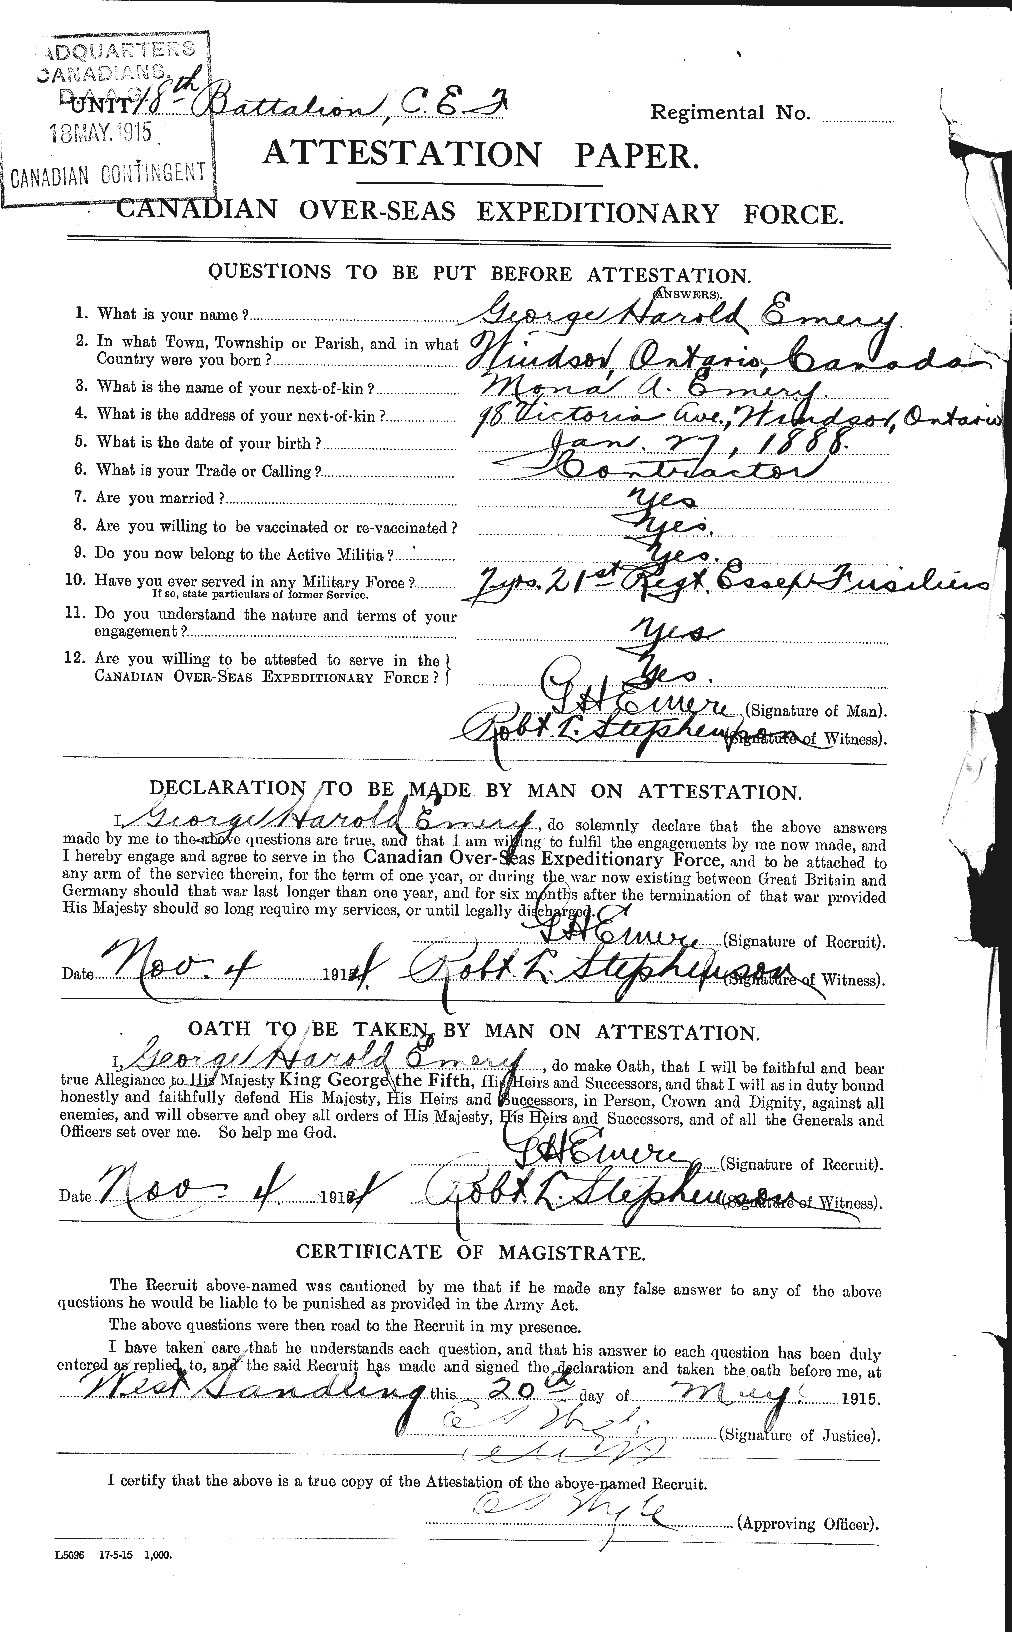 ADQUARTERS
CANADIANS.
D.A.A.G.
UNIT 18th Battalion, C.E.F
18 MAY. 1915
CANADIAN CONTINGENT
Regimental No.
ATTESTATION PAPER.
CANADIAN OVER-SEAS EXPEDITIONARY FORCE.
QUESTIONS TO BE PUT BEFORE ATTESTATION.
(ANSWERS).
1. What is your name? George Harold Emery
2. In what Town, Township or Parish, and in what
Country were you born? Windsor, Ontario, Canada
3. What is the name of your next-of-kin? Mona A. Emery.
4. What is the address of your next-of-kin? 98 Victoria Ave., Windsor, Ontario
5. What is the date of your birth? Jan. 27, 1888.
6. What is your Trade or Calling? Contractor
7. Are you married? Yes
8. Are you willing to be vaccinated or re-vaccinated? Yes.
9. Do you now belong to the Active Militia? Yes.
10. Have you ever served in any Military Force? 7 yrs. 21st Regt. Essex Fusiliers
If so, state particulars of former Service.
11. Do you understand the nature and terms of your
engagement? Yes
12. Are you willing to be attested to serve in the
CANADIAN OVER-SEAS EXPEDITIONARY FORCE? Yes.
G H Emery (Signature of Man).
Robt L. Stephenson (Signature of Witness).
DECLARATION TO BE MADE BY MAN ON ATTESTATION.
I, George Harold Emery, do solemnly declare that the above answers
made by me to the above questions are true, and that I am willing to fulfil the engagements by me now made, and
I hereby engage and agree to serve in the Canadian Over-Seas Expeditionary Force, and to be attached to
any arm of the service therein, for the term of one year, or during the war now existing between Great Britain and
Germany should that war last longer than one year, and for six months after the termination of that war provided
His Majesty should so long require my services, or until legally discharged.
G H Emery (Signature of Recruit).
Date Nov. 4 1914. Robt L. Stephenson (Signature of Witness).
OATH TO BE TAKEN BY MAN ON ATTESTATION.
I, George Harold Emery, do make Oath, that I will be faithful and bear
true Allegiance to His Majesty King George the Fifth, His Heirs and Successors, and that I will as in duty bound
honestly and faithfully defend His Majesty, His Heirs and Successors, in Person, Crown and Dignity, against all
enemies, and will observe and obey all orders of His Majesty, His Heirs and Successors, and of all the Generals and
Officers set over me. So help me God.
G H Emery (Signature of Recruit).
Date Nov - 4 1914 Robt L. Stephenson (Signature of Witness).
CERTIFICATE OF MAGISTRATE.
The Recruit above-named was cautioned by me that if he made any false answer to any of the above
questions he would be liable to be punished as provided in the Army Act.
The above questions were then read to the Recruit in my presence.
I have taken care that he understands each question, and that his answer to each question has been duly
entered as replied to, and the said Recruit has made and signed the declaration and taken the oath before me, at
West Sandling this 20th day of May. 1915.
(Signature of Justice).
I certify that the above is a true copy of the Attestation of the above-named Recruit.
(Approving Officer).
L5096 17-5-15 1,000.